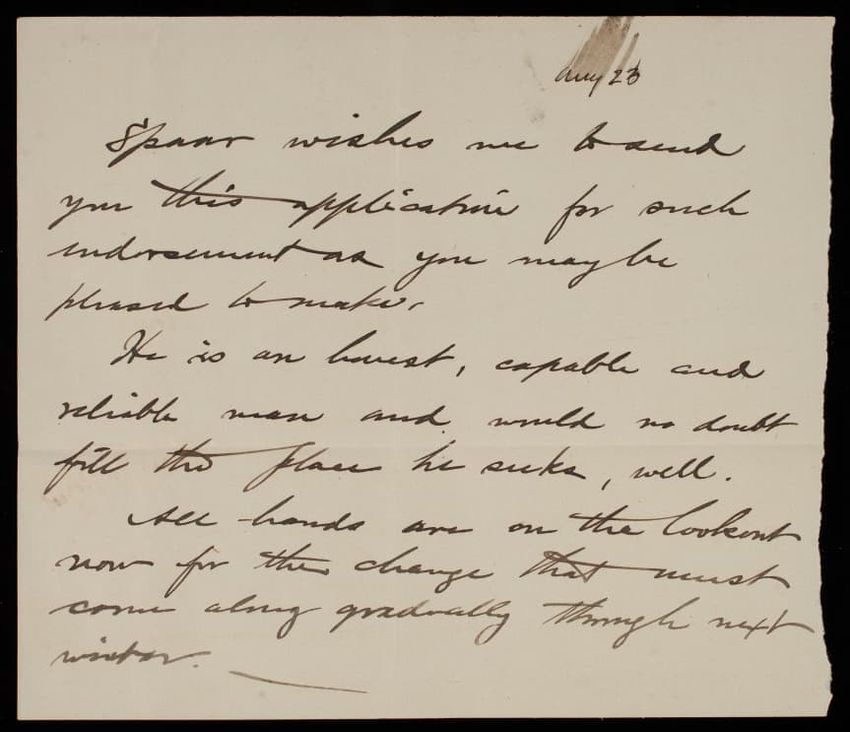 Aug 23
Spaar wishes me to send
you this application for such
endorsement as you may be
pleased to make.
He is an honest, capable and
reliable man and would no doubt
fill the place he seeks, well.
All hands are on the lookout
now for the change that must
come along gradually through next
winter.